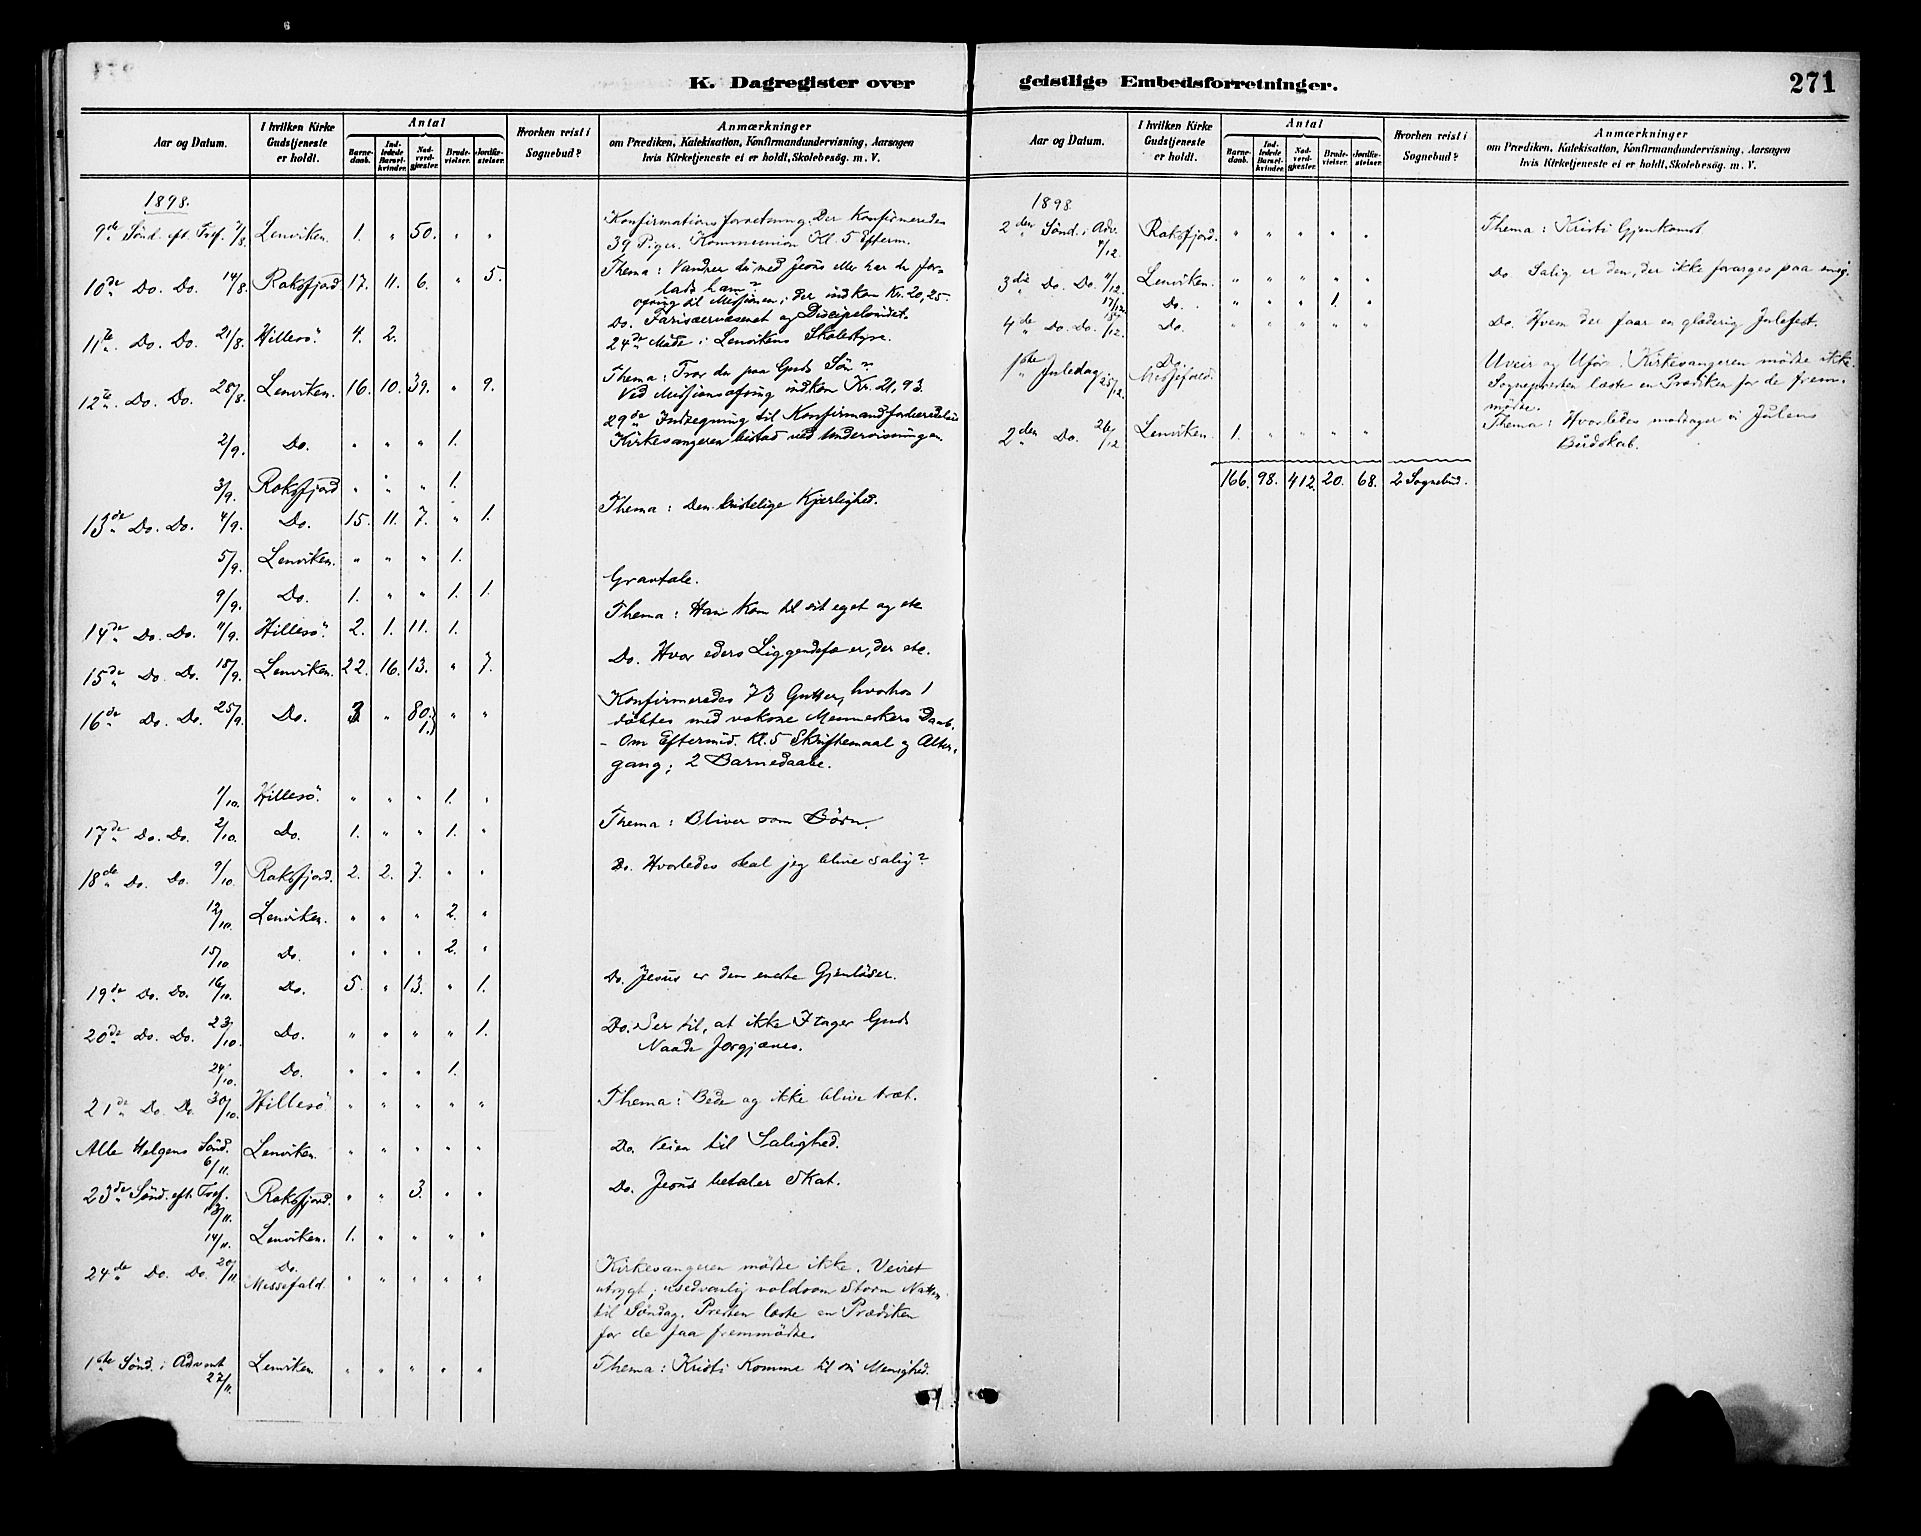 K. Dagregister over
geistlige Embedsforretninger.
271
Aar og Datum.
I hvilken Kirke Gudstjeneste er holdt.
Antal
Barnedaab.
Indledede Barselkvinder.
Nadverdgjester.
Brudevielser.
Jordfæstelser.
Hvorhen reist i Sognebud?
Anmærkninger
om Prædiken, Katekisation, Konfirmandundervisning, Aarsagen
hvis Kirketjeneste ei er holdt, Skolebesøg. m. V.
1898.
9de Sönd. eft. Tref. 7/8. Lenviken. 1. " 50. " " Konfirmationsforretning. Der Konfirmeredes
39 Piger. Kommunion Kl. 5 Efterm.
10de Do. Do. 14/8. Roksfjord 17. 11. 6. " 5. Thema: Vandrer du med Jesus eller har du for-
ladt ham?
ofring til Missionen; der indkom Kr. 20,25.
11te Do. Do. 21/8. Hillesö. 4. 2. Do. Farisæervæsenet og Discipelsindet.
24de Möde i Lenvikens Skolestyre.
12te Do. Do. 28/8. Lenviken. 16. 10. 39. " 9. Thema: Tror du paa Guds Sön?
Ved Missionsofring indkom Kr. 21,93.
29de Indtegning til Konfirmandforberedelse
2/9. Do. " " " 1. Kirkesangeren bistod ved Undervisningen.
3/9. Roksfjord " " " 1.
13de Do. Do. 4/9. Do. 15. 11. 7. " 1. Thema: Den kristelige Kjærlighed.
5/9. Lenviken. " " " 1.
9/9. Do. 1. " " 1. 1. Gravtale.
14de Do. Do. 11/9. Hillesö. 2. 1. 11. 1. Thema: Han kom til sit eget og etc
15de Do. Do. 18/9. Lenviken. 22. 16. 13. " 7. Do. Hvor eders Liggendefæ er, der etc.
16de Do. Do. 25/9. Do. 3 " 80. 1. " " Konfirmeredes 73 Gutter, hvorhos 1
döbtes med voksne Menneskers Daab.
- Om Eftermid. Kl. 5 Skriftemaal og Alter-
gang; 2 Barnedaabe.
1/10. Hillesö. " " " 1. "
17de Do. Do. 2/10. Do. 1. " " 1. " Thema: Bliver som Børn.
18de Do. Do. 9/10. Roksfjord. 2. 2. 7. " " Do. Hvorledes skal jeg blive salig?
12/10. Lenviken. " " " 2. "
15/10. Do. " " " 2. "
19de Do. Do. 16/10. Do. 5. " 13. " 1. Do. Jesus er den eneste Gjenlöser.
20de Do. Do. 23/10. Do. " " " " 1. Do. Ser til, at ikke I tager Guds
Naade forgjæves.
24/10. Do. " " " 1.
21de Do. Do. 30/10. Hillesö " " " " " Thema: Bede og ikke blive træt.
Alle Helgens Sönd. 6/11. Lenviken. " " " " " Do. Veien til Salighed.
23de Sönd. eft. Tref. 13/11. Roksfjord. " " 3. " " Do. Jesus betaler Skat.
14/11. Lenviken. 1. " " " "
24de Do. Do. 20/11 Do. Messefald. " " " " " Kirkesangeren mödte ikke. Veiret
utrygt; usedvanlig voldsom Storm Natten
til Söndag. Presten læste en Prædiken
for de faa fremmödte.
1ste Sönd. i Advent 27/11. Lenviken. " " " " " Thema: Kristi Komme til sin Menighed.
Aar og Datum.
I hvilken Kirke Gudstjeneste er holdt.
Antal
Barnedaab.
Indledede Barselkvinder.
Nadverdgjester.
Brudevielser.
Jordfæstelser.
Hvorhen reist i Sognebud?
Anmærkninger
om Prædiken, Katekisation, Konfirmandundervisning, Aarsagen
hvis Kirketjeneste ei er holdt, Skolebesøg. m. V.
1898
2den Sönd. i Adv. 4/12. Roksfjord. " " " " " Thema: Kristi Gjenkomst
3die Do. Do. 11/12. Lenviken. " " " " " Do. Salig er den, der ikke forarges paa mig.
17/12. Do. " " " 1. "
4de Do. Do. 18/12. Do. " " " " " Do. Hvem der faar en glæderig Julefest.
1ste Juledag 25/12. Do. Messefald. Uveir og Uför. Kirkesangeren mödte ikke.
Sognepresten læste en Prædiken for de frem-
mödte.
2den Do. 26/12 Lenviken. 1. " " " " Thema: Hvorledes modtager vi Julens
Budskab.
166. 98. 412. 20. 68. 2 Sognebud.